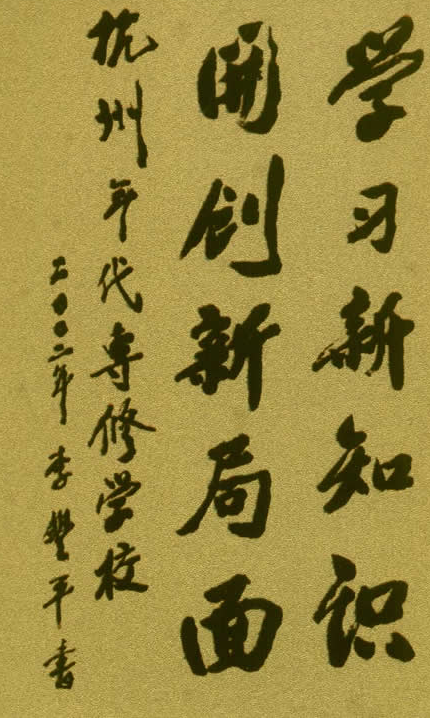 学习新知识
開创新局面
杭州年代专修学校
二00二年李豐平书